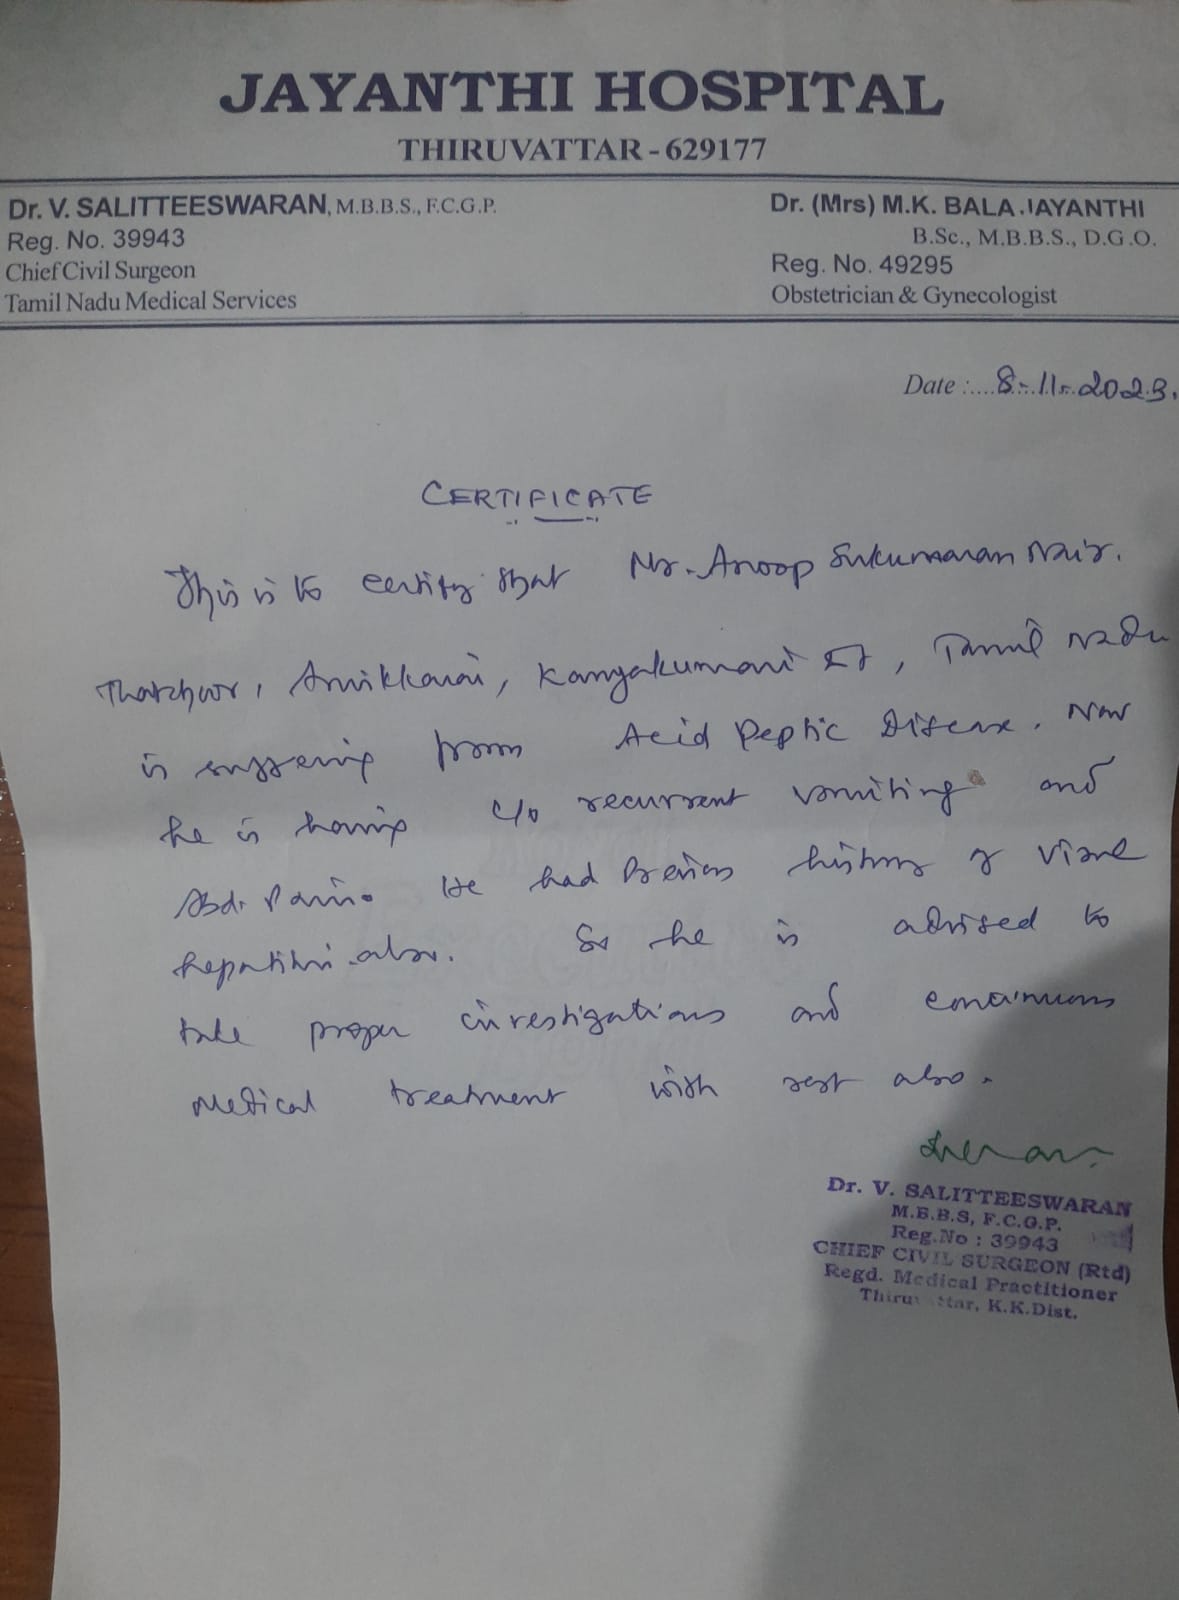 JAYANTHI HOSPITAL
THIRUVATTAR - 629177
Dr. V. SALITTEESWARAN, M.B.B.S., F.C.G.P.
Reg. No. 39943
Chief Civil Surgeon
Tamil Nadu Medical Services
Dr. (Mrs) M.K. BALA JAYANTHI
B.Sc., M.B.B.S., D.G.O.
Reg. No. 49295
Obstetrician & Gynecologist
Date :....8-11-2023.
CERTIFICATE
This is to certify that Mr. Anoop Sukumaran Nair.
Kanyakumari Dt, Tamil Nadu
is suffering from Acid Peptic Disease. Now
he is having c/o recurrent vomiting and
Abd. Pain. He had Previous history of Viral
hepatitis also. So he is advised to
take proper investigations and continuous
Medical treatment with rest also.
Dr. V. SALITTEESWARAN
M.B.B.S, F.C.G.P.
Reg.No : 39943
CHIEF CIVIL SURGEON (Rtd)
Regd. Medical Practitioner
Thiruvattar, K.K.Dist.